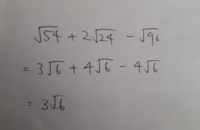 √54 + 2√24 - √96
= 3√6 + 4√6 - 4√6
= 3√6